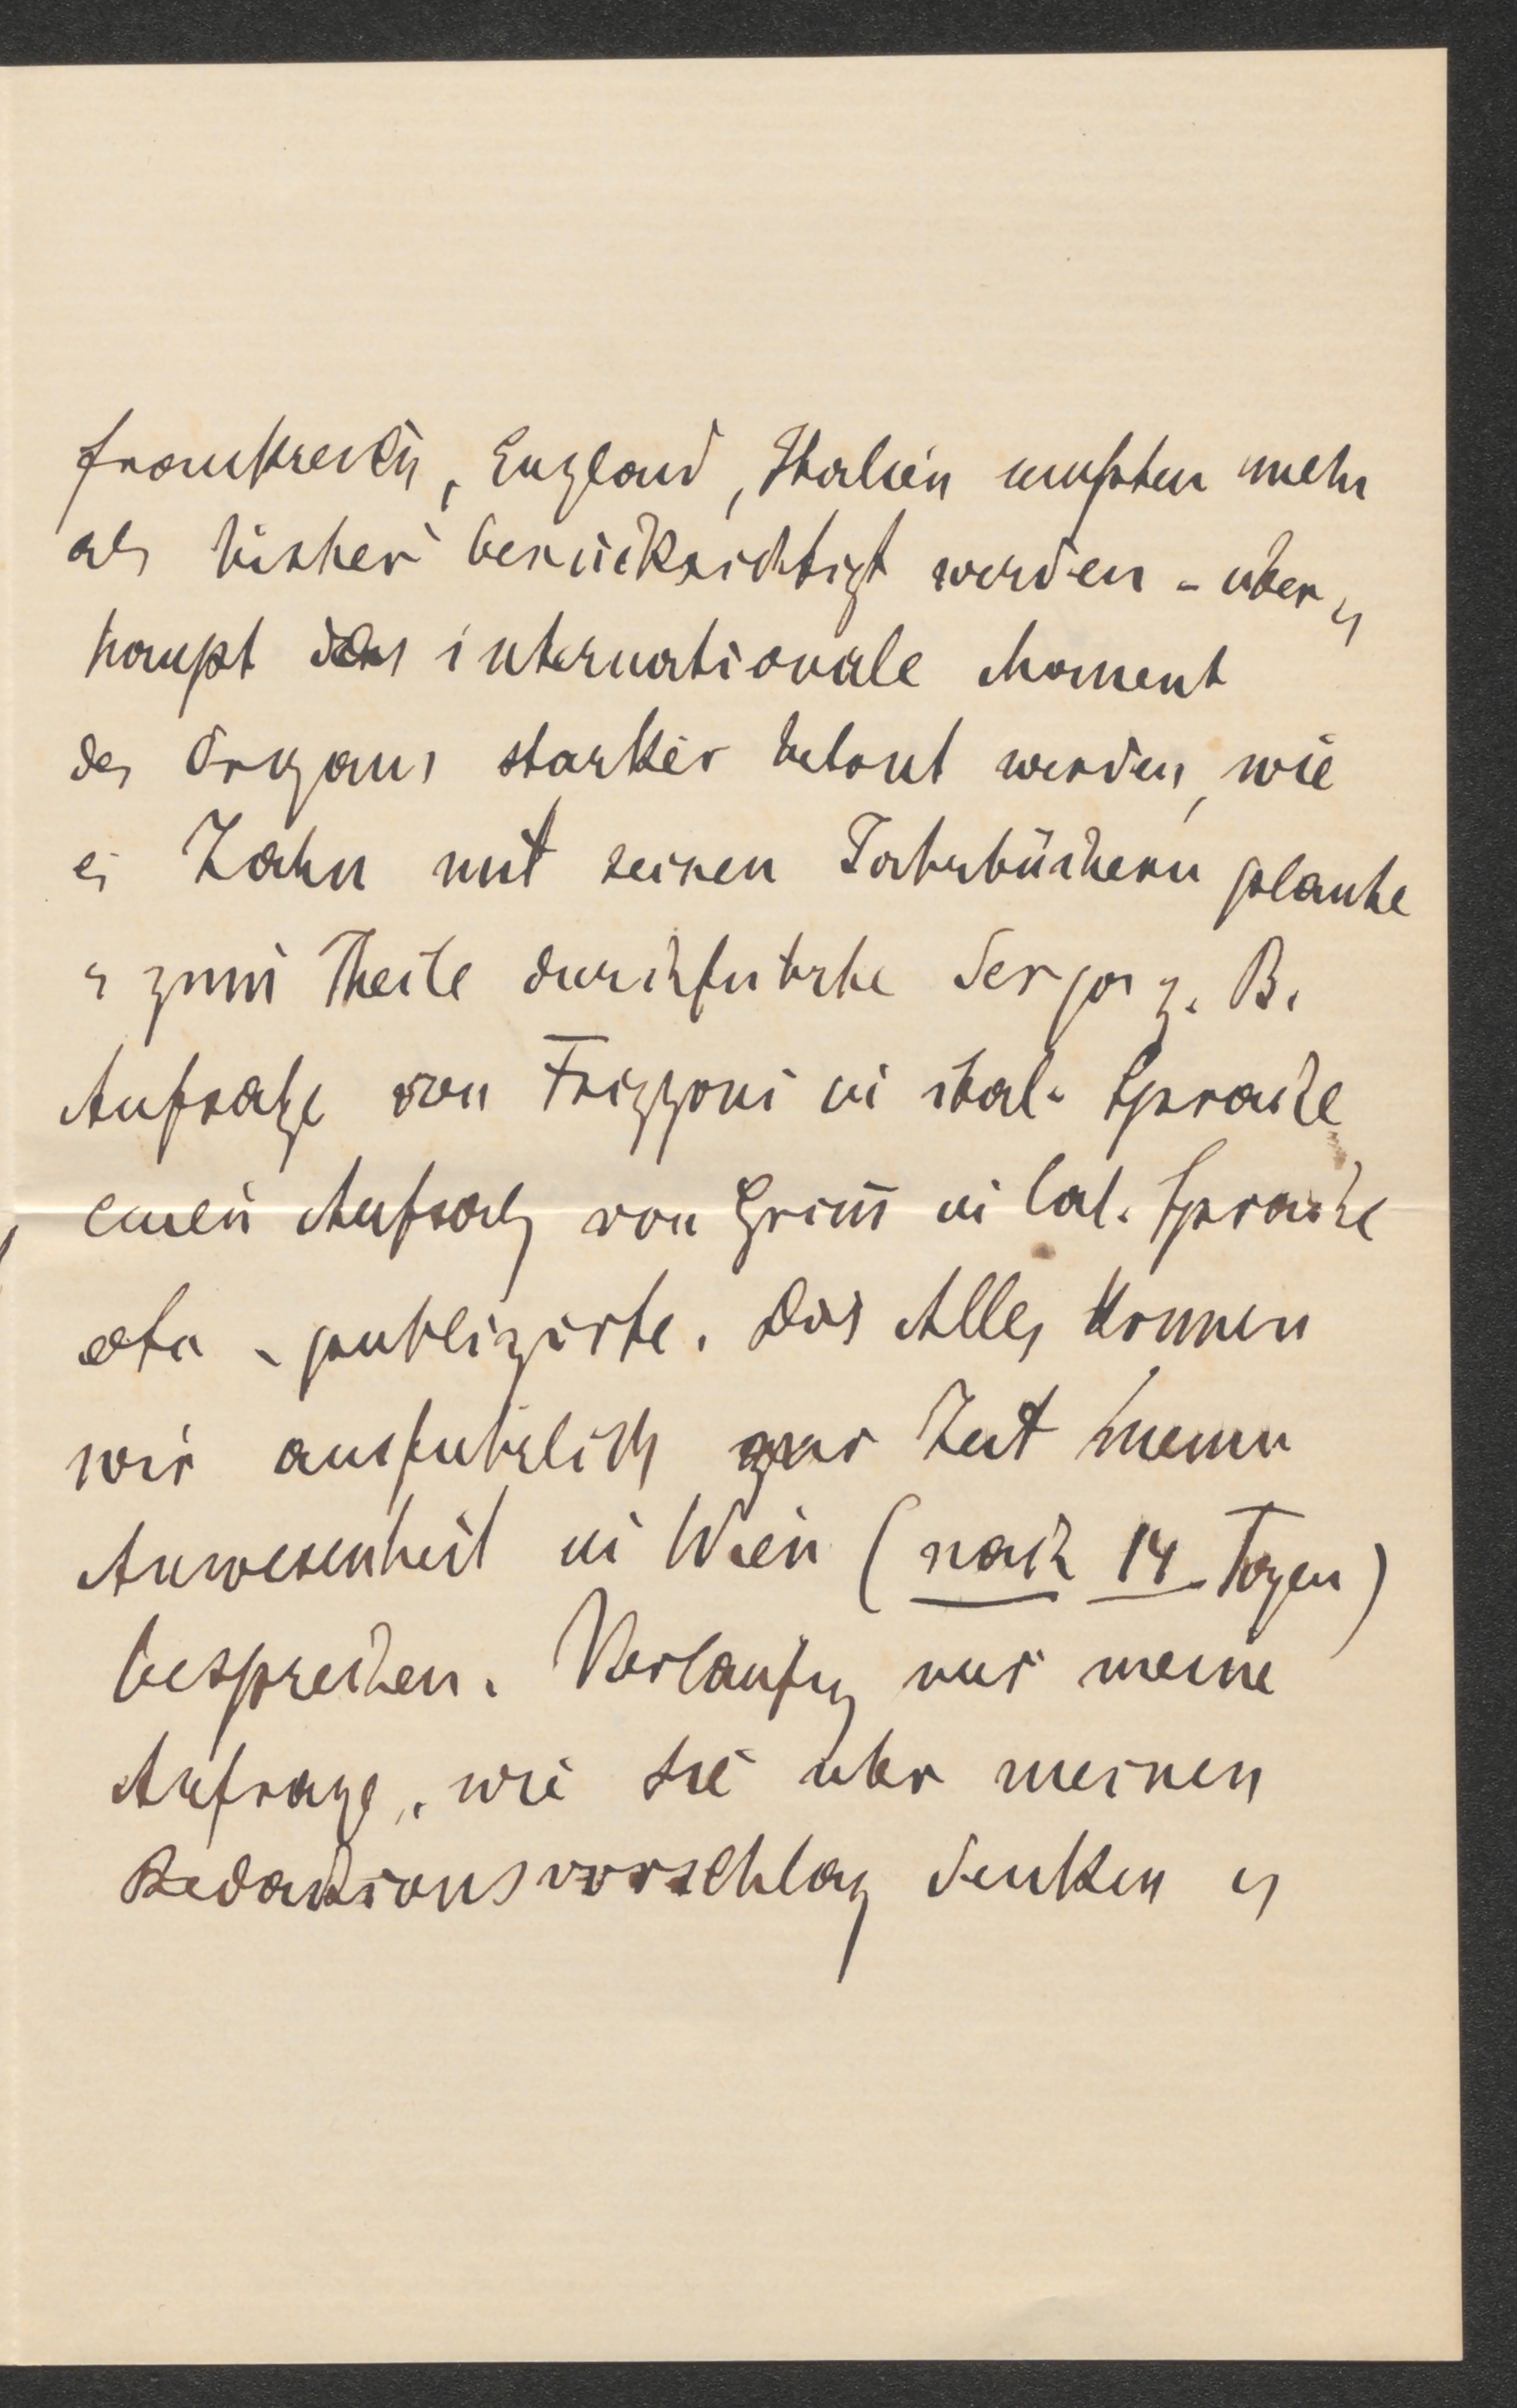 Frankreich, England, Italien mußten mehr
als bisher berücksichtigt werden - über
haupt das internationale Moment
des Organs starker betont werden, wie
es Zahn mit seinen Jahrbüchern plante
u zum Theile durchfuhrte der ja z. B.
Aufsatze von Frizzoni in ital. Sprache
einen Aufsatz von Grim̄ in lat. Sprache
etc. publizirte. Das Alles konnen
wir ausfuhrlich zur Zeit meiner
Anwesenheit in Wien (nach 14 Tagen)
besprechen. Vorlaufig nur meine
Anfrage, wie Sie uber meinen
Redaktionsvorschlag denken u